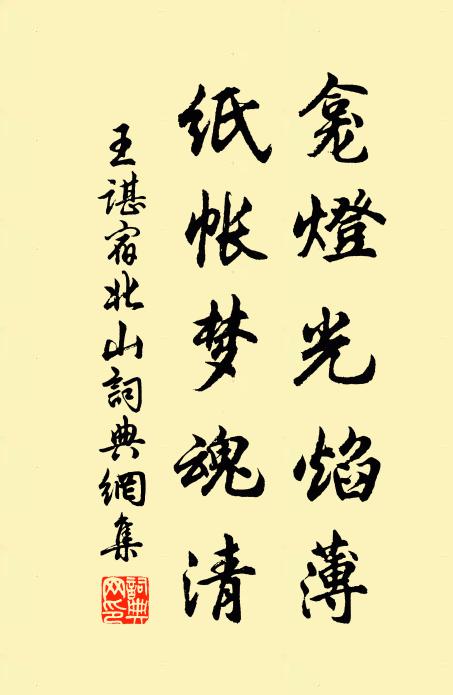 龛燈光焰薄
纸帐梦魂清
王谌宿北山詞典網集
詞典網印